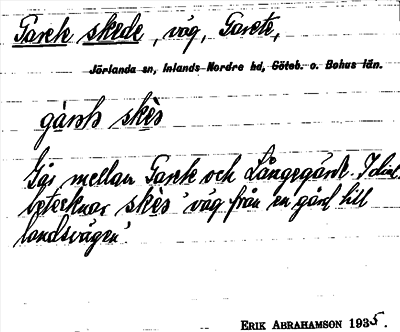 Tarek skede, väg, Tareke,
Jörlanda sn, Inlands Nordre hd, Göteb. o. Bohus län.
skès
Går mellan och Långegärde. I dial.
betecknar skès 'väg från en gård till
landsvägen'.
ERIK ABRAHAMSON 1935.